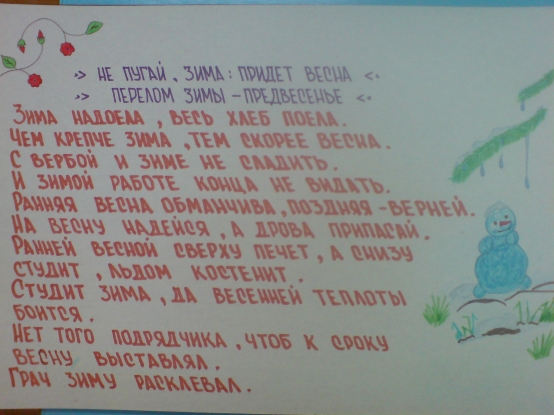 ·>> НЕ ПУГАЙ, ЗИМА: ПРИДЕТ ВЕСНА <<·
·>> ПЕРЕЛОМ ЗИМЫ - ПРЕДВЕСЕНЬЕ <<·
ЗИМА НАДОЕЛА, ВЕСЬ ХЛЕБ ПОЕЛА.
ЧЕМ КРЕПЧЕ ЗИМА, ТЕМ СКОРЕЕ ВЕСНА.
С ВЕРБОЙ И ЗИМЕ НЕ СЛАДИТЬ.
И ЗИМОЙ РАБОТЕ КОНЦА НЕ ВИДАТЬ.
РАННЯЯ ВЕСНА ОБМАНЧИВА, ПОЗДНЯЯ - ВЕРНЕЙ.
НА ВЕСНУ НАДЕЙСЯ, А ДРОВА ПРИПАСАЙ.
РАННЕЙ ВЕСНОЙ СВЕРХУ ПЕЧЕТ, А СНИЗУ
СТУДИТ, ЛЬДОМ КОСТЕНИТ.
СТУДИТ ЗИМА, ДА ВЕСЕННЕЙ ТЕПЛОТЫ
БОИТСЯ.
НЕТ ТОГО ПОДРЯДЧИКА, ЧТОБ К СРОКУ
ВЕСНУ ВЫСТАВЛЯЛ.
ГРАЧ ЗИМУ РАСКЛЕВАЛ.